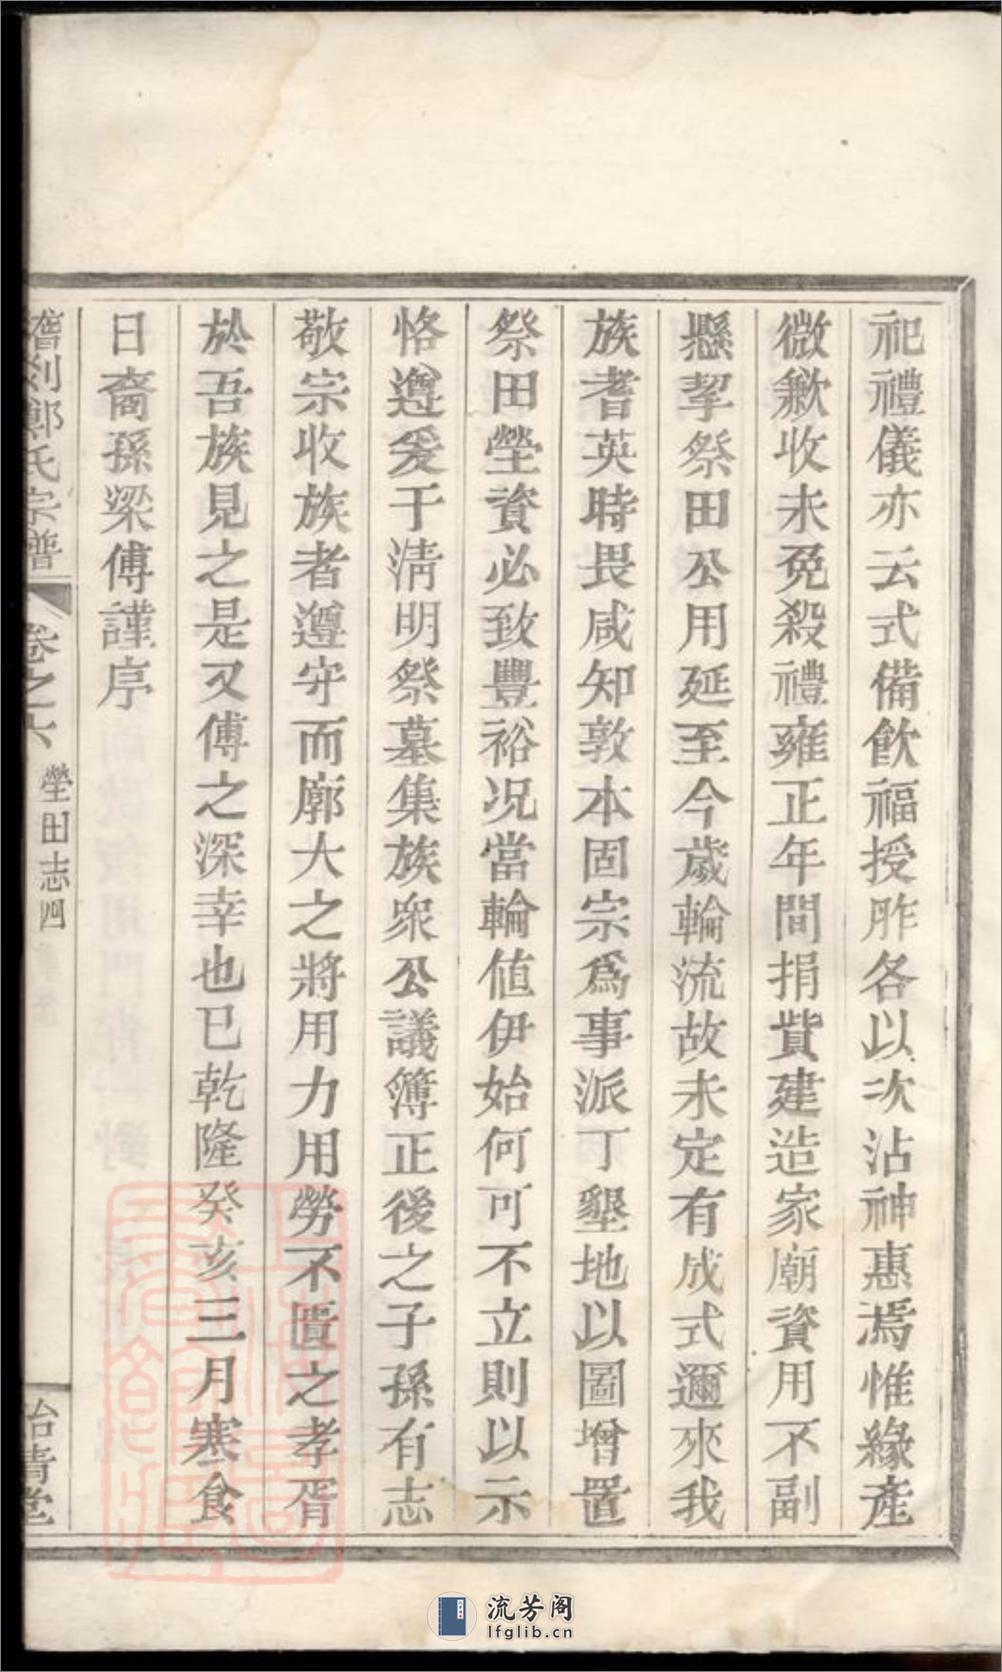 祀禮儀亦云式備飮福授胙各以次沾神惠焉惟緣產
微歉收未免殺禮雍正年間捐貲建造家廟資用不副
懸挈祭田公用延至今歲輪流故未定有成式邇來我
族耆英時畏咸知敦本固宗爲事派丁墾地以圖增置
祭田塋資必致豐裕况當輪値伊始何可不立則以示
恪遵爰于淸明祭墓集族衆公議簿正後之子孫有志
敬宗收族者遵守而廓大之將用力用勞不匱之孝胥
於吾族見之是又傅之深幸也已乾隆癸亥三月寒食
日裔孫梁傅謹序
剡鄭氏宗譜
卷之六
塋田志四
流芳阁
lfglib.cn